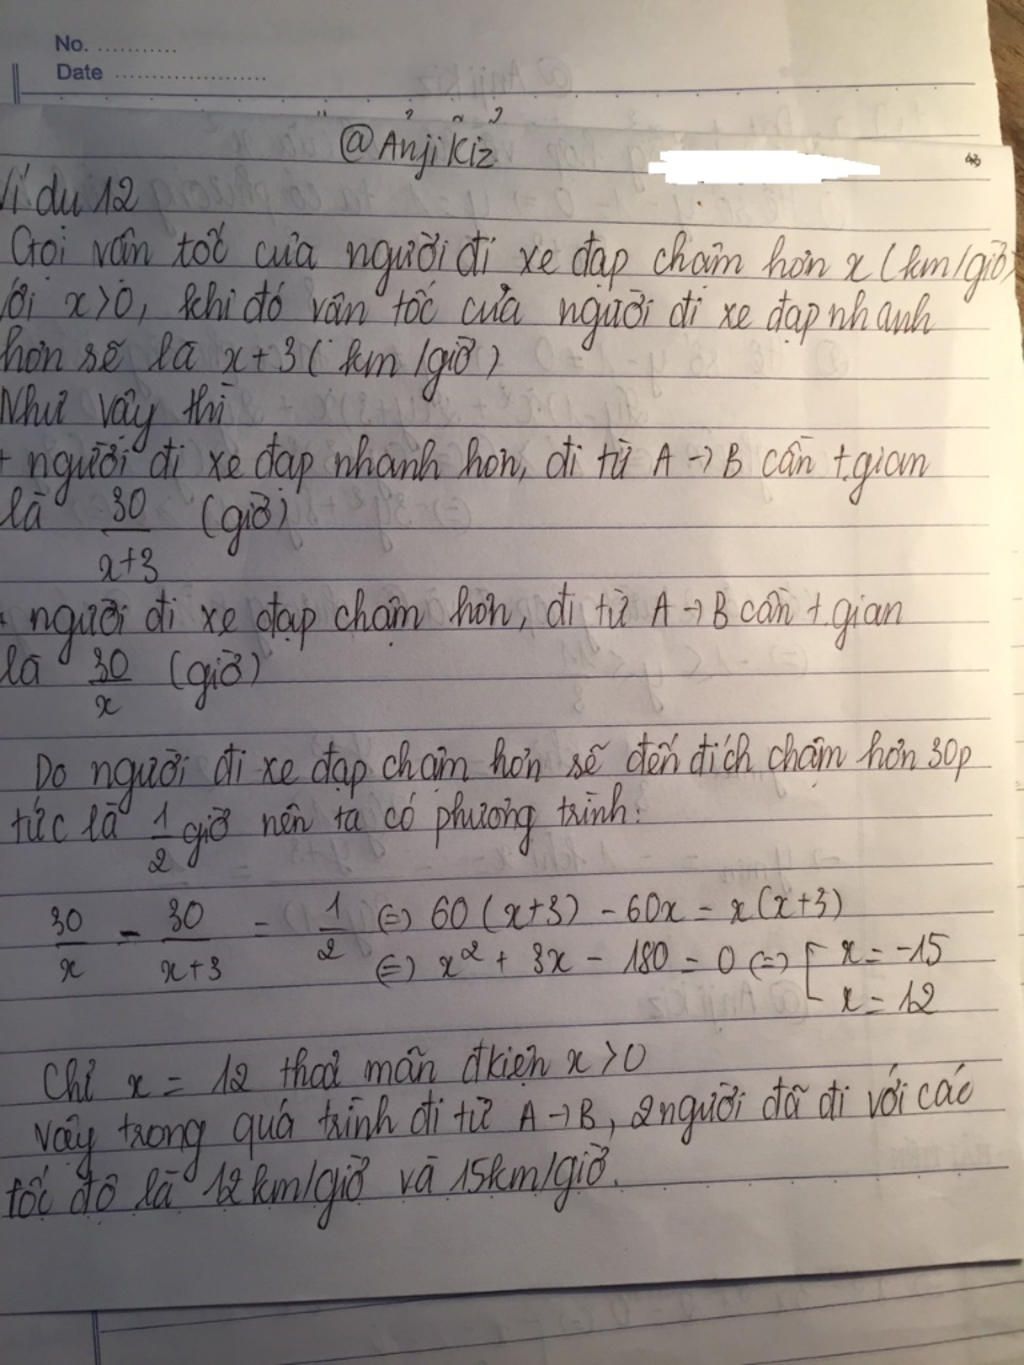 No. ............
Date ......................
@Anji Kiz
Ví dụ 12
Gọi vận tốc của người đi xe đạp chậm hơn x (km/giờ)
với x>0, khi đó vận tốc của người đi xe đạp nhanh
hơn sẽ là x+3 (km/giờ)
Như vậy thì
+ người đi xe đạp nhanh hơn, đi từ A → B cần t.gian
là 30/(x+3) (giờ)
+ người đi xe đạp chậm hơn, đi từ A → B cần t.gian
là 30/x (giờ)
Do người đi xe đạp chậm hơn sẽ đến đích chậm hơn 30p
tức là 1/2 giờ nên ta có phương trình:
30/x - 30/(x+3) = 1/2 (=) 60(x+3) - 60x = x(x+3)
(=) x² + 3x - 180 = 0 (=) [ x = -15
x = 12
Chỉ x = 12 thoả mãn đkiện x>0
Vậy trong quá trình đi từ A → B, 2 người đã đi với các
tốc độ là 12km/giờ và 15km/giờ.